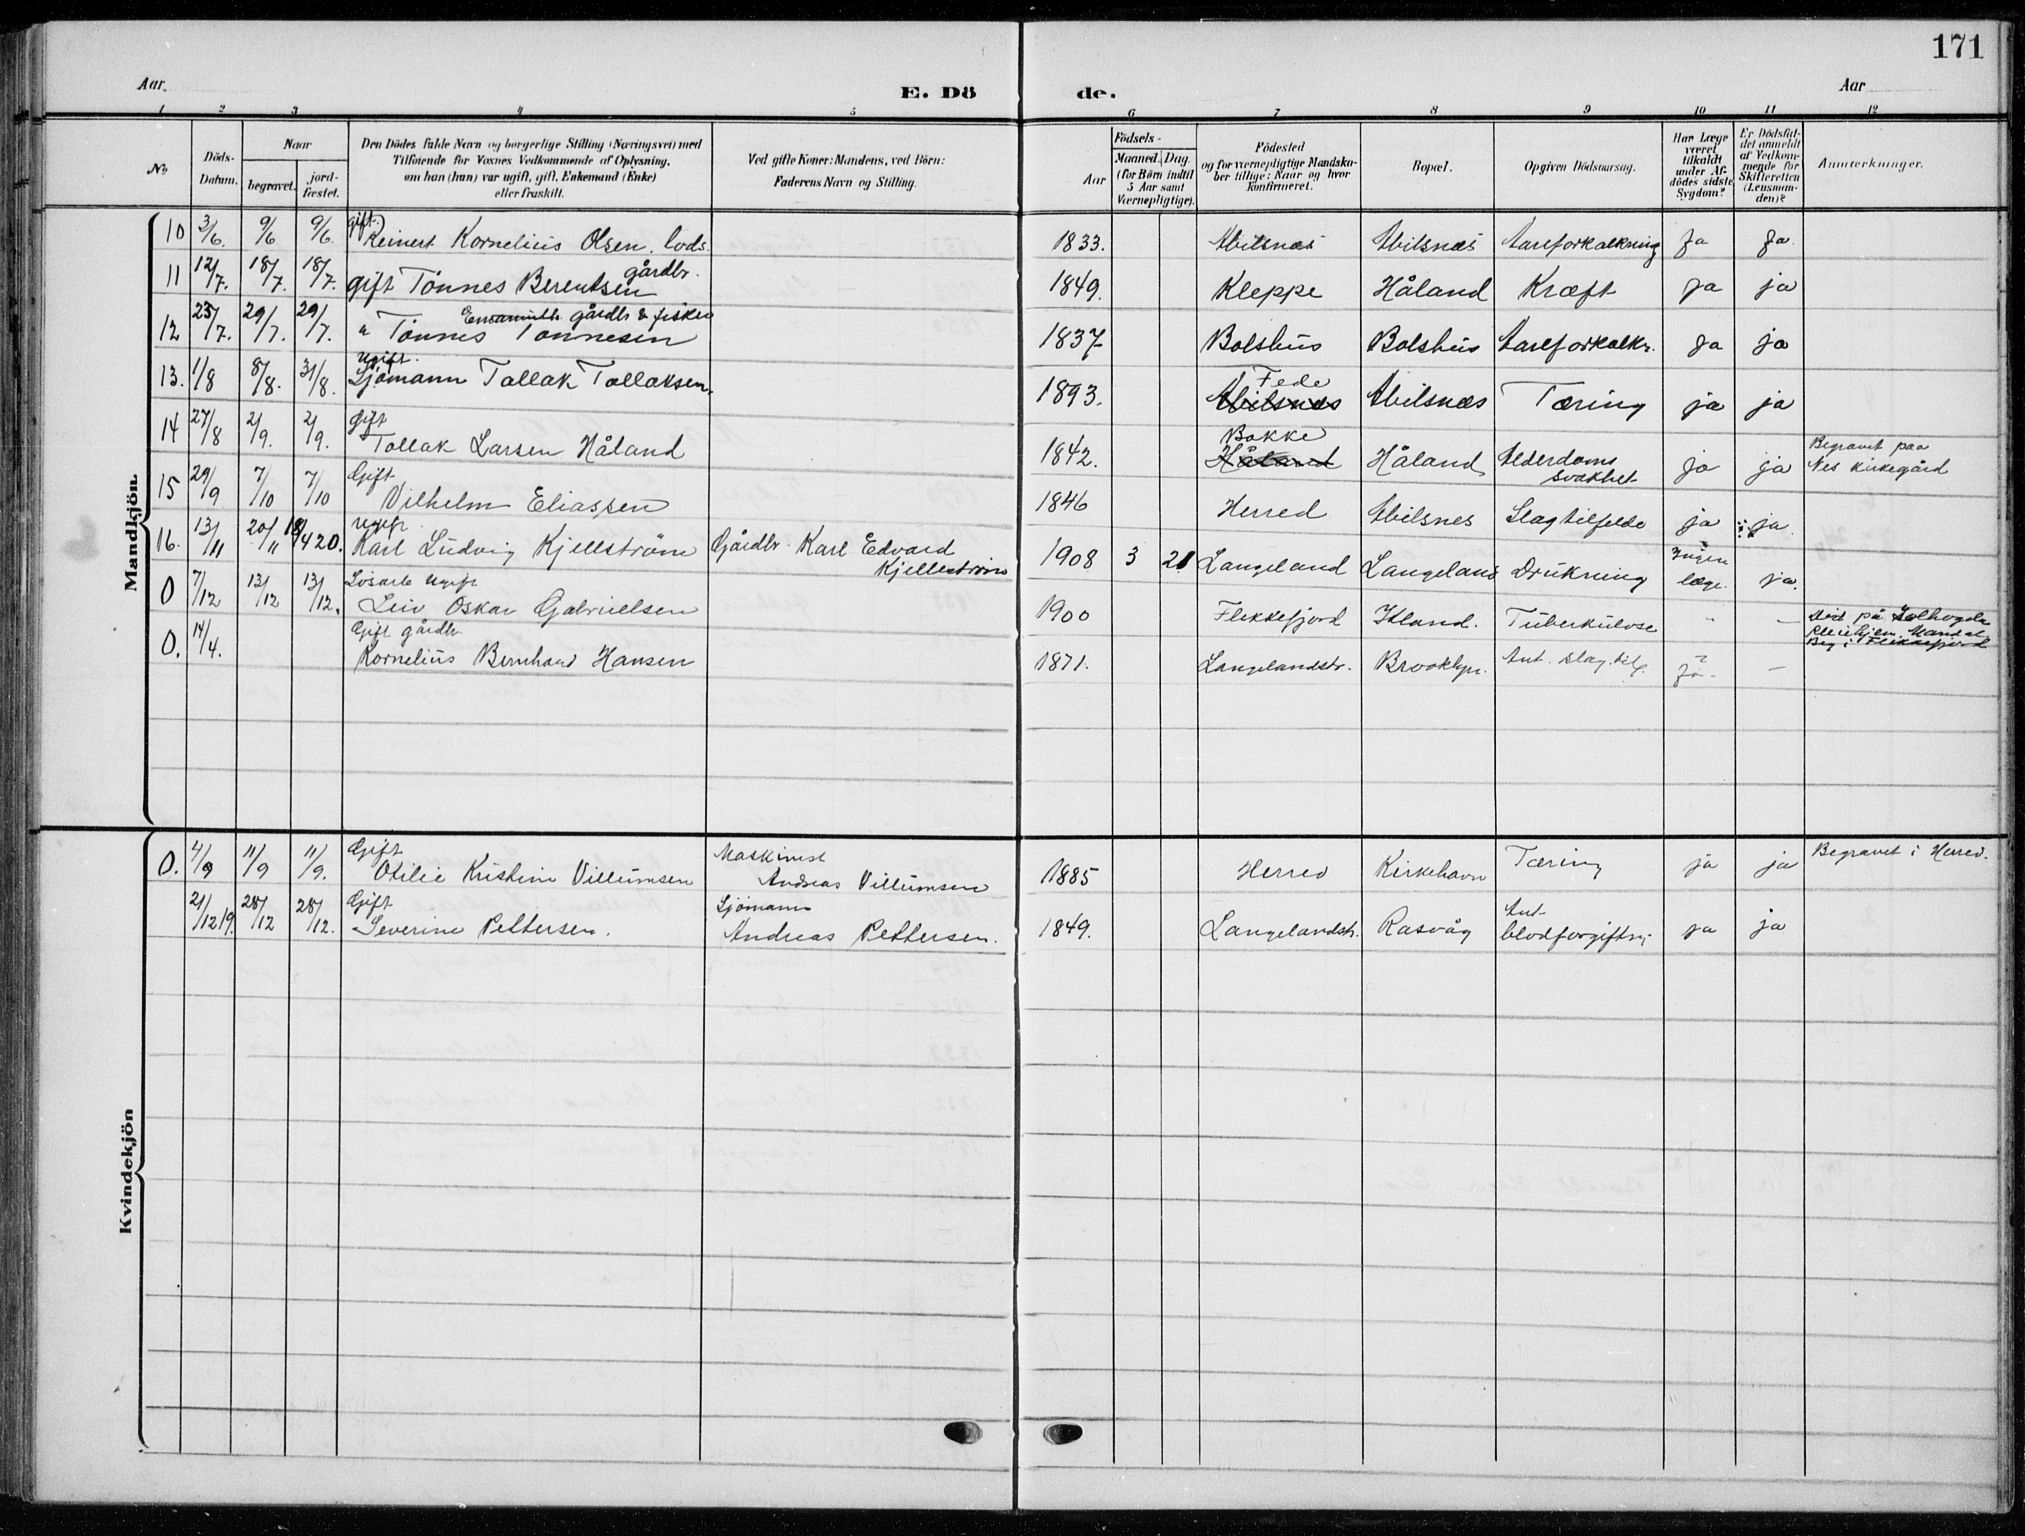 171
Aar
E. Dö
de.
Aar
1 2 3 4 5 6 7 8 9 10 11 12
No.
Döds-
Datum.
Naar
begravet.
jord-
fæstet.
Den Dödes fulde Navn og borgerlige Stilling (Næringsvei) med
Tilföiende for Voxnes Vedkommende af Oplysning,
om han (hun) var ugift, gift, Enkemand (Enke)
eller fraskilt.
Ved gifte Koner: Mandens, ved Börn:
Faderens Navn og Stilling.
Födsels-
Aar
Maaned. Dag.
(for Börn indtil
5 Aar samt
Værnepligtige).
Födested
og for værnepligtige Mandska-
ber tillige: Naar og hvor
Konfirmeret.
Bopæl.
Opgiven Dödsaarsag.
Har Læge
været
tilkaldt
under Af-
dödes sidste
Sygdom?
Er Dödsfal-
det anmeldt
af Vedkom-
mende for
Skifteretten
(Lensman-
den)?
Anmærkninger.
Mandkjön.
10 3/6. 9/6 9/6. gift. Reinert Kornelius Olsen. lods. 1833. Abilsnæs Abilsnæs Aareforkalkning Ja Ja.
11 12/7. 18/7. 18/7. gift Tönnes Berentsen gårdbr. 1849. Kleppe Håland Kræft ja ja
12 25/7. 29/7. 29/7. " Tönnes Tönnesen gårdb & fisker 1837 Bolshus Bolshus Aareforkalkn. ja ja
13. 1/8 8/8. 31/8. ugift. Sjömann Tallak Tallaksen. 1893. Abilsnæs Fede Abilsnæs Tæring ja ja
14 27/8 2/9. 2/9. gift Tollak Larsen Håland 1842. Håland Bakke Håland Alderdoms svakhet ja ja Begravet paa
Nes kirkegård
15 29/9 7/10 7/10 Gift Vilhelm Eliassen 1846 Herred Abilsnes Slagtilfelde ja ja.
16. 13/11 20/11 18/4 20. ugift. Karl Ludvig Kjellström Gårdbr. Karl Edvard
Kjellström 1908 3 21 Langeland Langeland Drukning Ingen
læge. ja.
0 7/12 13/12 13/12. Lösarb ugift Leiv Oskar Gabrielsen 1900 Flekkefjord Tuberkulose " - Död på
Mandal,
Beg i Flekkefjord
0. 14/4. Gift gårdbr Kornelius Bernhard Hansen 1871. Langelandstr. Brooklyn. Ant. slag.tilf. ja? -
Kvindekjön
0. 4/9 11/9 11/9. Gift Otilie Kristine Villumsen Maskinist
Andreas Villumsen 1885 Herred Kirkehavn Tæring ja ja Begravet i Herred.
21/12 19. 28/12 28/12. Gift Severine Pettersen. Sjömann
Andreas Pettersen. 1849. Langelandstr. Rasvåg Ant-
blodforgiftn. ja ja